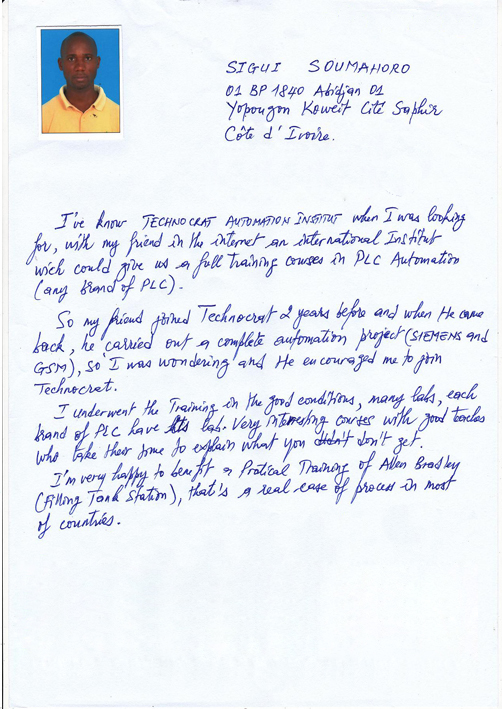 SIGUI SOUMAHORO
01 BP 1840 Abidjan 01
Yopougon Koweit Cité Saphir
Côte d'Ivoire.
I've know TECHNOCRAT AUTOMATION INSTITUT when I was looking
for, with my friend in the internet an international Institut
wich could give us a full training courses in PLC Automation
(any brand of PLC).
So my friend joined Technocrat 2 years before and when He came
back, he carried out a complete automation project (SIEMENS and
GSM), so I was wondering and He encouraged me to join
Technocrat.
I underwent the Training in the good conditions, many labs, each
brand of PLC have lab. Very interesting courses with good teaches
who take their time to explain what you didn't don't get.
I'm very happy to benefit a Pratical Training of Allen Bradley
(Filling Tank Station), that's a real case of process in most
of countries.